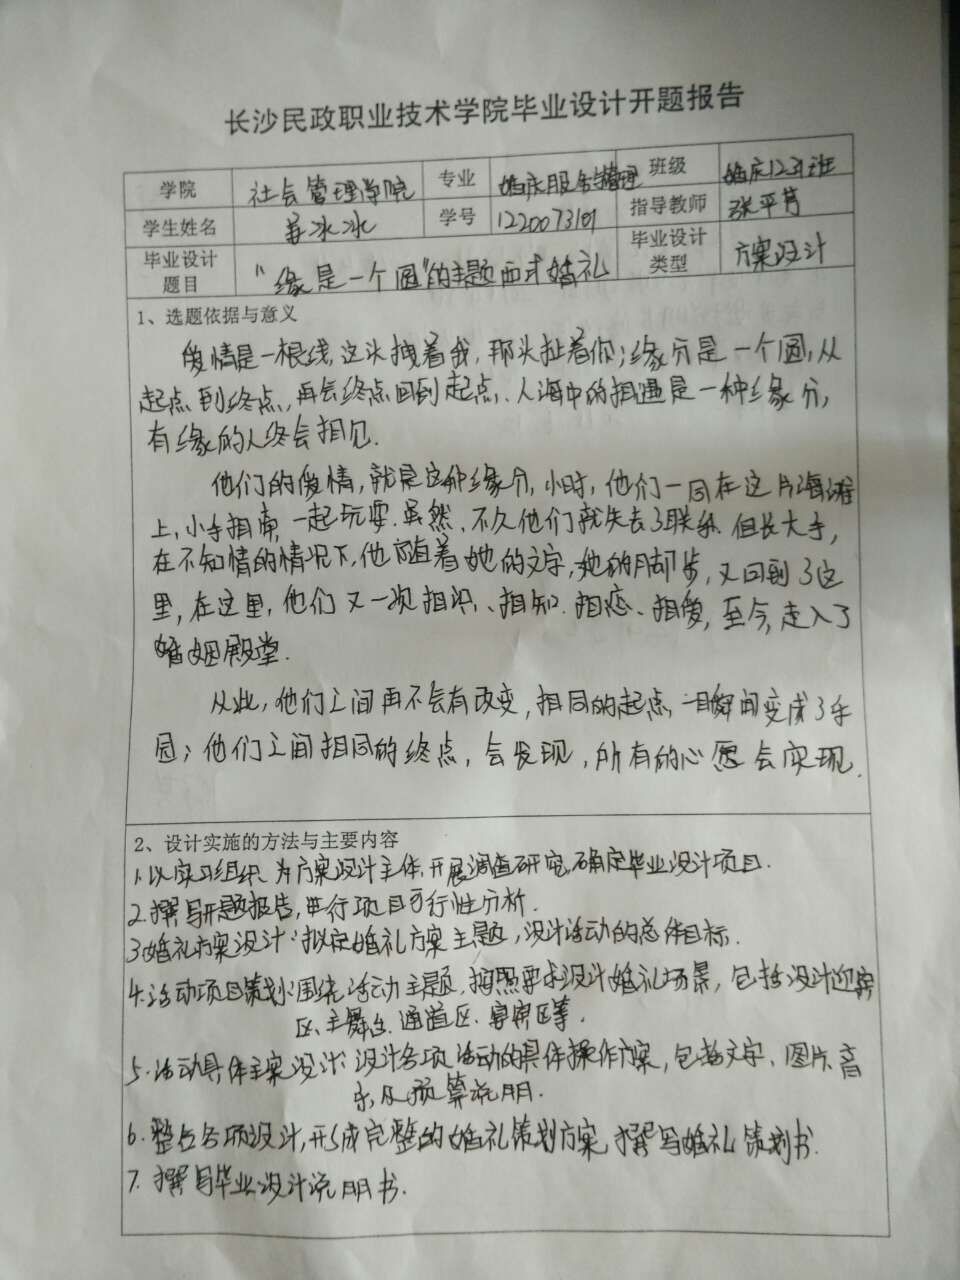 长沙民政职业技术学院毕业设计开题报告
学院 社会管理学院 专业 婚庆服务与管理 班级 婚庆1231班
学生姓名 姜冰冰 学号 1220073101 指导教师 张平芳
毕业设计题目 “缘是一个圆”的主题西式婚礼 毕业设计类型 方案设计
1、选题依据与意义
爱情是一根线,这头拽着我,那头扯着你;缘分是一个圆,从
起点到终点,再会终点回到起点、人海中的相遇是一种缘分,
有缘的人终会相见.
他们的爱情,就是这种缘分,小时,他们一同在这片海滩
上,小手相牵,一起玩耍.虽然、不久他们就失去了联络.但长大后,
在不知情的情况下,他随着她的文字,她的脚步,又回到了这
里,在这里,他们又一次相识、相知、相恋、相爱,至今,走入了
婚姻殿堂.
从此,他们之间再不会有改变,相同的起点,一瞬间变成了乐
园;他们之间相同的终点,会发现,所有的心愿会实现.
2、设计实施的方法与主要内容
1.以实习组织为方案设计主体,开展调查研究,确定毕业设计项目.
2.撰写开题报告,进行项目可行性分析.
3.婚礼方案设计:拟定婚礼方案主题,设计活动的总体目标.
4.活动项目策划:围绕活动主题,按照要求设计婚礼场景,包括设计迎宾
区、主舞台、通道区、宴宾区等.
5.活动具体方案设计:设计各项活动的具体操作方案,包括文字、图片、音
乐,及预算说明.
6.整合各项设计,形成完整的婚礼策划方案,撰写婚礼策划书.
7.撰写毕业设计说明书.